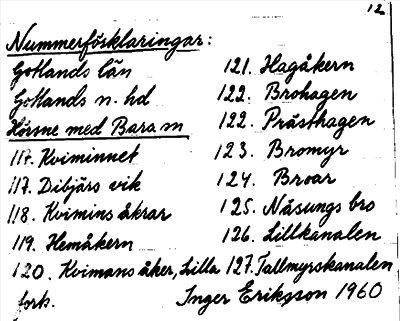 12
Nummerförklaringar:
Gotlands län
Gotlands n. hd
Hörsne med Bara sn
117. Kviminnet
117. Dibjärs vik
118. Kvimins åkrar
119. Hemåkern
120. Kvimans åker, Lilla
fork.
121. Hagåkern
122. Brohagen
122. Prästhagen
123. Bromyr
124. Broar
125. Näsungs bro
126. Lillkanalen
127. Tallmyrskanalen
Inger Eriksson 1960